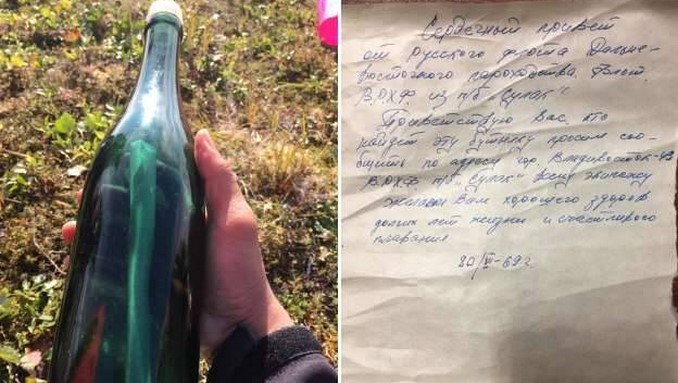 Сердечный привет
от Русского флота Дальне-
восточного пароходства. Флот.
В.О.Х.Ф. из п/б "Сулак"
Приветствую Вас, кто
найдет эту бутылку просим соо-
бщить по адресу гор. Владивосток-43
В.О.Х.Ф. п/б "Сулак" всему экипажу
желаем Вам хорошего здоров
долгих лет жизни и счастливого
плавания
20/VI-69 г.